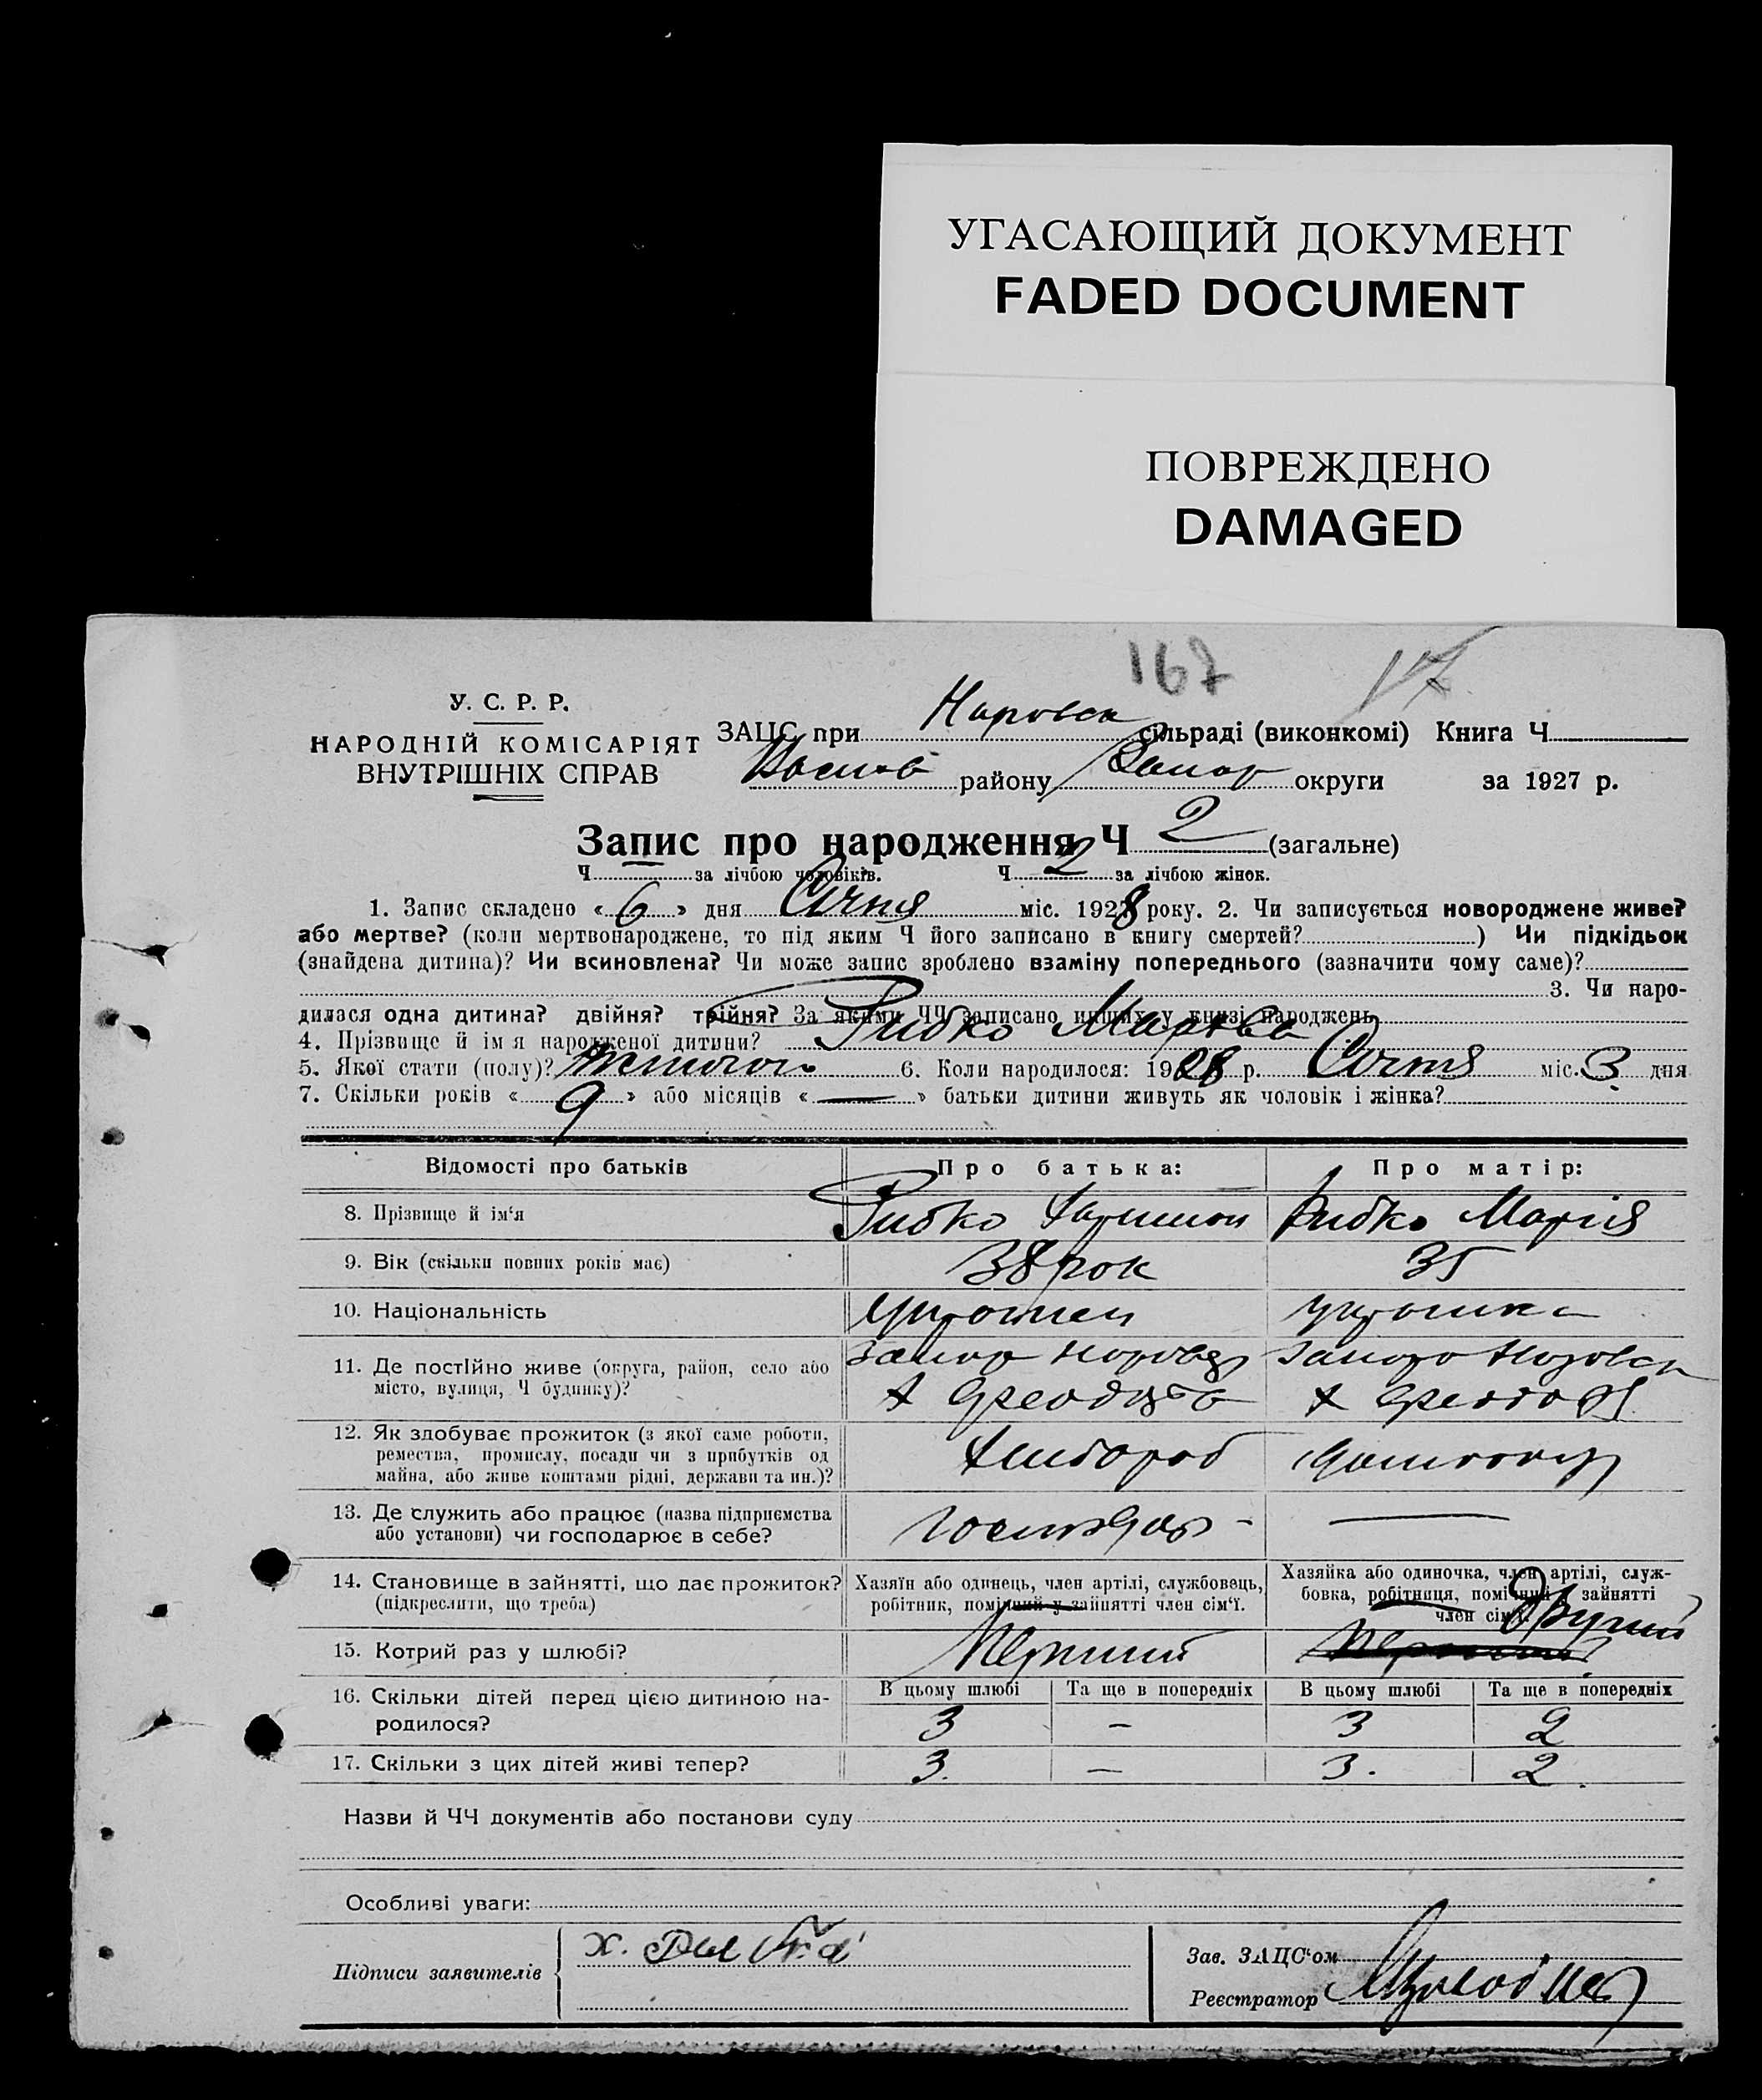 УГАСАЮЩИЙ ДОКУМЕНТ
FADED DOCUMENT
ПОВРЕЖДЕНО
DAMAGED
167 17
У. С. Р. Р.
НАРОДНІЙ КОМІСАРІЯТ
ВНУТРІШНІХ СПРАВ
ЗАЦС при сільраді (виконкомі) Книга Ч
району Запор округи за 1927 р.
Запис про народження Ч 2 (загальне)
Ч — за лічбою чоловіків. Ч 2 за лічбою жінок.
1. Запис складено « 6 » дня Січня міс. 1928 року. 2. Чи записується новороджене живе?
або мертве? (коли мертвонароджене, то під яким Ч його записано в книгу смертей? ) Чи підкідьок
(знайдена дитина)? Чи всиновлена? Чи може запис зроблено взаміну попереднього (зазначити чому саме)?
3. Чи наро-
дилася одна дитина? двійня? трійня? За якими ЧЧ записано инших у книзі народжень
4. Прізвище й ім я народженої дитини? Рибко Марфа
5. Якої стати (полу)? 6. Коли народилося: 1928 р. Січня міс. 3 дня
7. Скільки років « 9 » або місяців « — » батьки дитини живуть як чоловік і жінка?
Відомості про батьків Про батька: Про матір:
8. Прізвище й ім‘я Рибко Рибко Марія
9. Вік (скільки повних років має) 38 рок 35
10. Національність
11. Де постійно живе (округа, район, село або
місто, вулиця, Ч будинку)?
12. Як здобуває прожиток (з якої саме роботи,
ремества, промислу, посади чи з прибутків од
майна, або живе коштами рідні, держави та ин.)? Хлибороб
13. Де служить або працює (назва підприємства
або установи) чи господарює в себе? Господар —
14. Становище в зайнятті, що дає прожиток?
(підкреслити, що треба)
Хазяїн або одинець, член артілі, службовець,
робітник, помічний у зайнятті член сім‘ї.
Хазяйка або одиночка, член артілі, служ-
бовка, робітниця, помічний в зайнятті
член сім‘ї.
15. Котрий раз у шлюбі? Перший Другий
16. Скільки дітей перед цією дитиною на-
родилося?
В цьому шлюбі Та ще в попередніх В цьому шлюбі Та ще в попередніх
3 — 3 2
17. Скільки з цих дітей живі тепер? 3. — 3. 2.
Назви й ЧЧ документів або постанови суду
Особливі уваги:
Підписи заявителів
Зав. ЗАЦС‘ом
Реєстратор